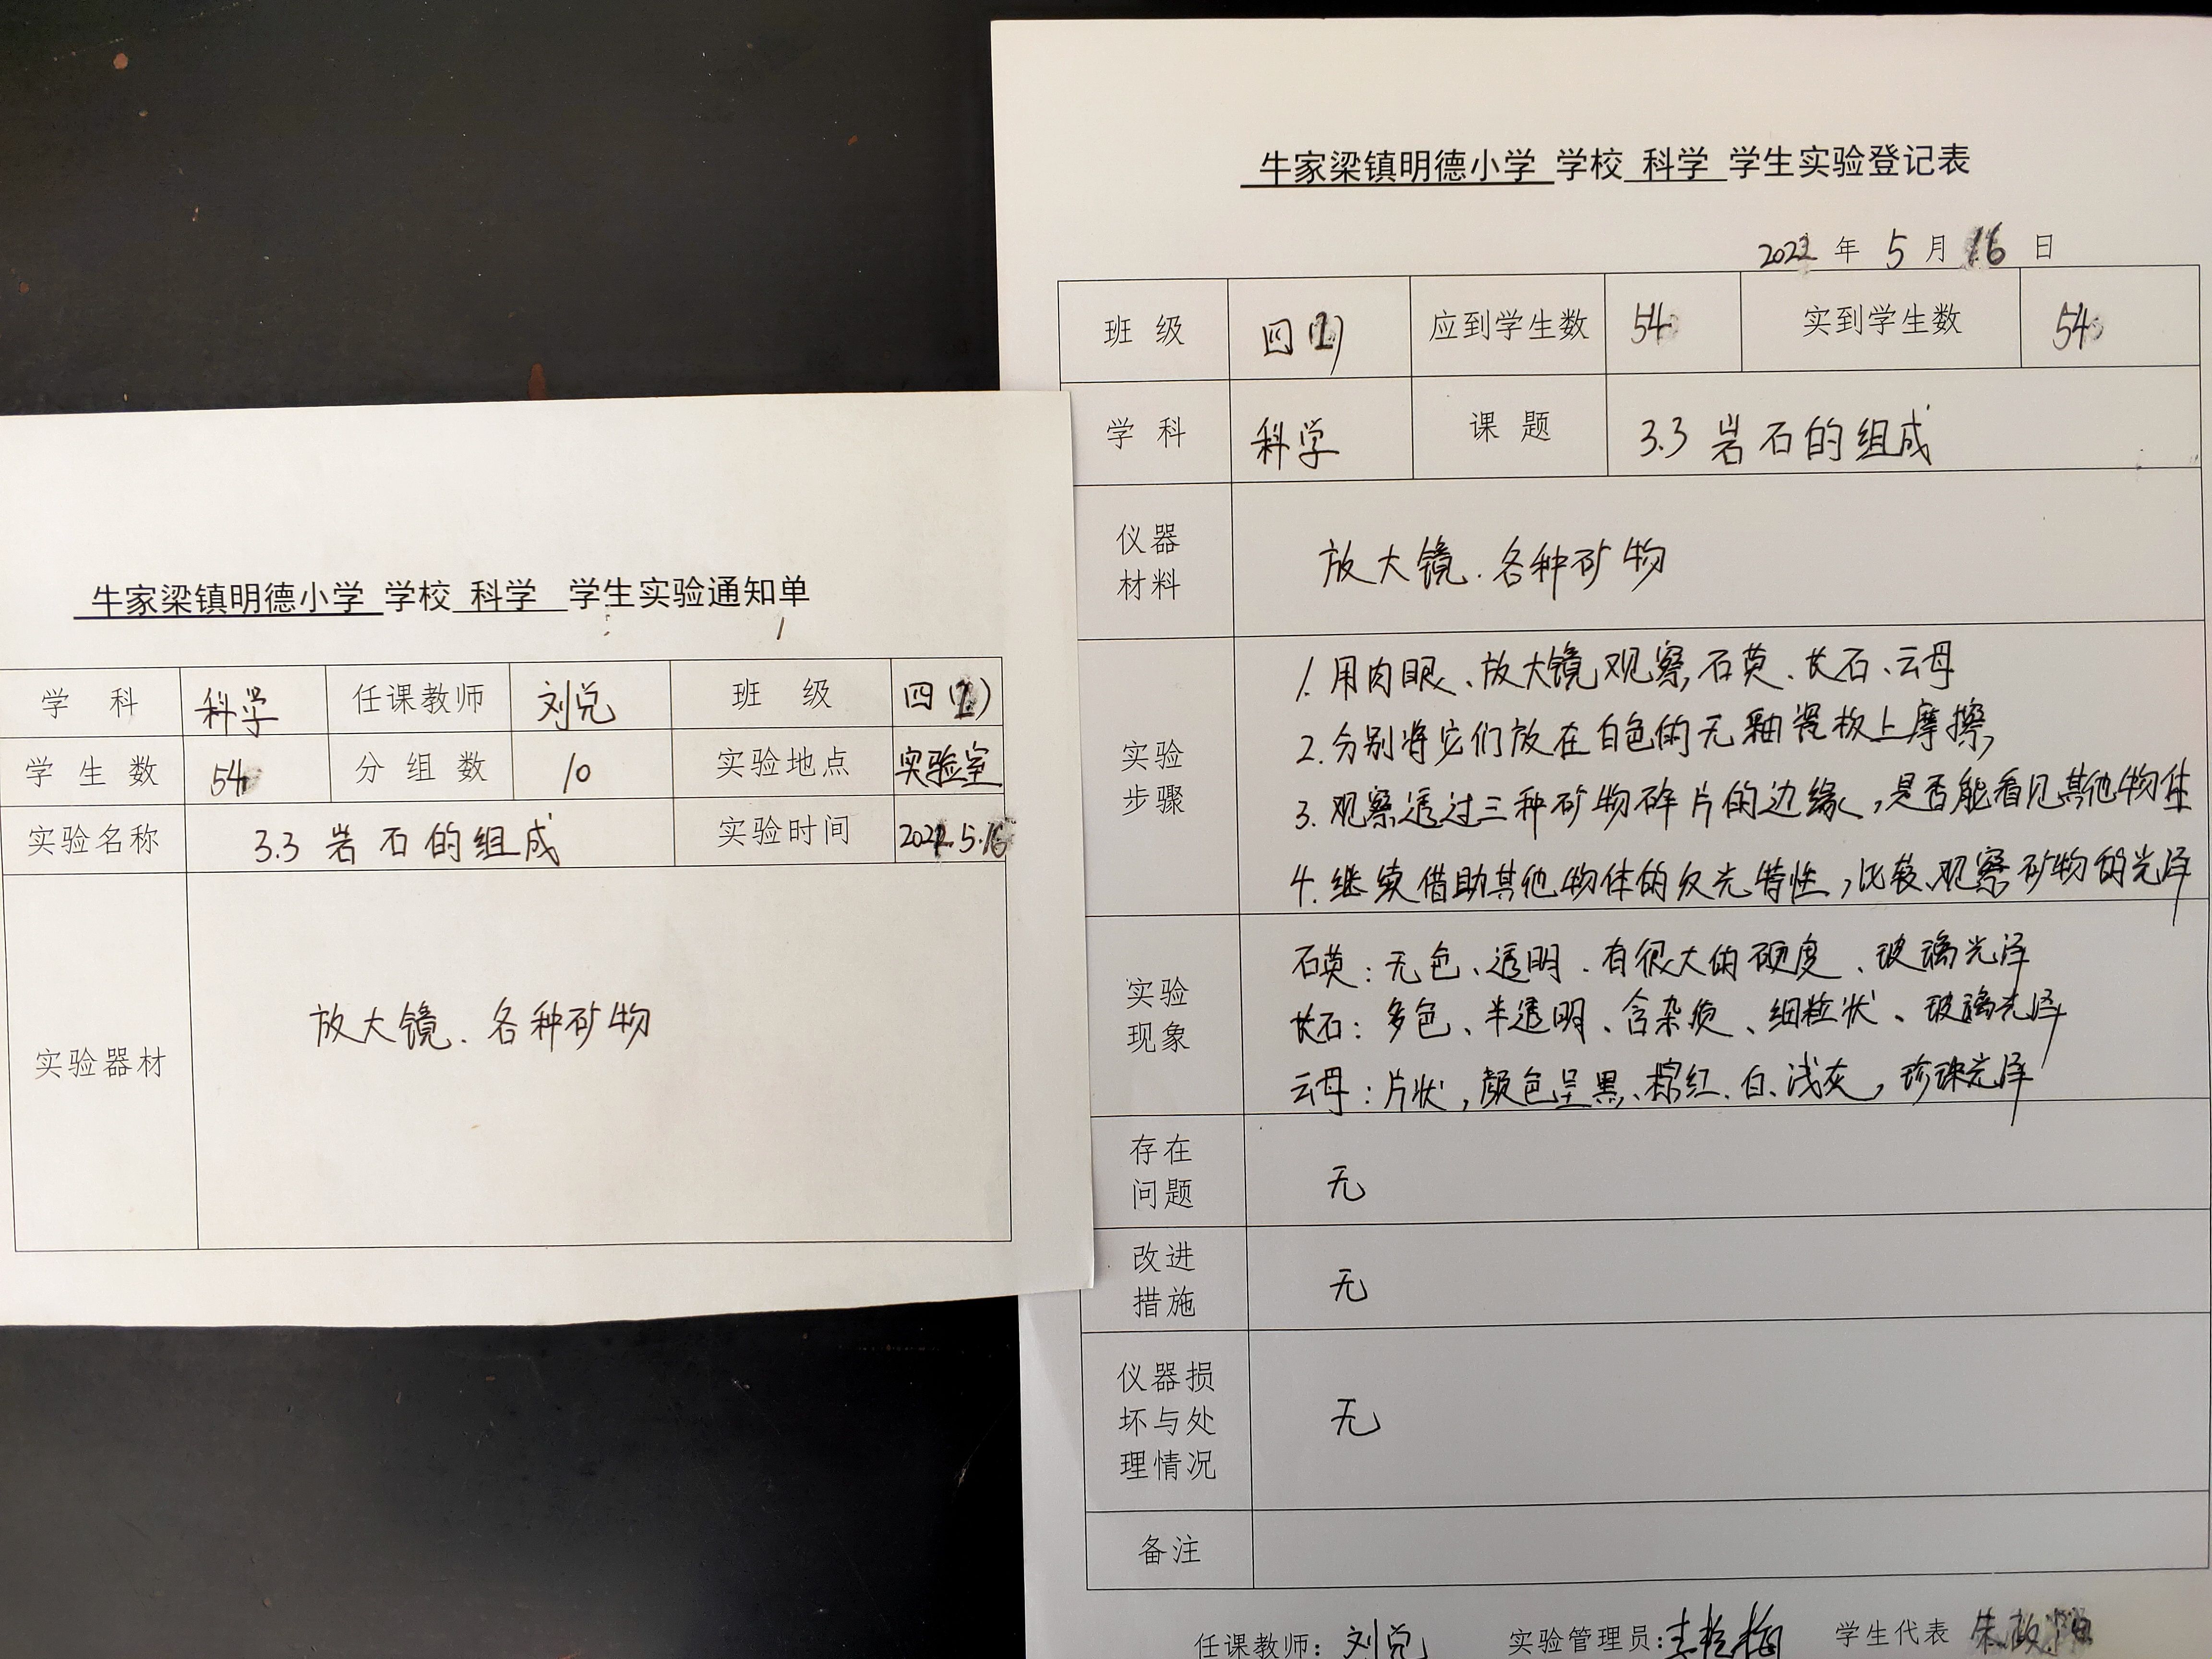 牛家梁镇明德小学 学校 科学 学生实验通知单
学 科 科学 任课教师 刘兑 班 级 四
学生数 54 分组数 10 实验地点 实验室
实验名称 3.3 岩石的组成 实验时间 2022.5.16
实验器材 放大镜、各种矿物
牛家梁镇明德小学 学校 科学 学生实验登记表
2022 年 5 月 16 日
班 级 四 应到学生数 54 实到学生数 54
学 科 科学 课 题 3.3 岩石的组成
仪器
材料
放大镜、各种矿物
实验
步骤
1. 用肉眼、放大镜观察石英、长石、云母
2. 分别将它们放在白色的无釉瓷板上摩擦,
3. 观察透过三种矿物碎片的边缘,是否能看见其他物体
4. 继续借助其他物体的反光特性,比较、观察矿物的光泽
实验
现象
石英:无色、透明、有很大的硬度、玻璃光泽
长石:多色、半透明、含杂质、细粒状、玻璃光泽
云母:片状,颜色呈黑、棕红、白、浅灰,珍珠光泽
存在
问题
无
改进
措施
无
仪器损
坏与处
理情况
无
备注
任课教师:刘兑 实验管理员: 学生代表